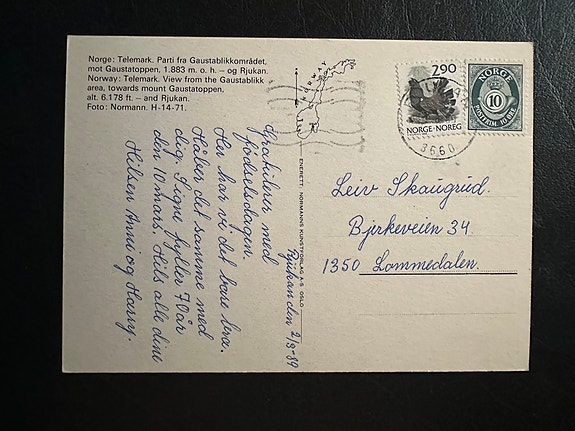 Norge: Telemark. Parti fra Gaustablikkområdet,
mot Gaustatoppen, 1.883 m. o. h. – og Rjukan.
Norway: Telemark. View from the Gaustablikk
area, towards mount Gaustatoppen,
alt. 6.178 ft. – and Rjukan.
Foto: Normann. H-14-71.
NORWAY
2,90
NORGE·NOREG
NORGE
10
3660
ENERETT: NORMANNS KUNSTFORLAG A·S OSLO
Rjukan den 2/3-89
Gratulerer med
fødselsdagen.
Her har vi det bare bra.
Håber det samme med
dig. Signe fyller 70 år
den 10 mars. Hils alle dine
Hilsen Anni og Harry.
Leiv Skaugrud.
Bjerkeveien 34.
1350 Lommedalen.